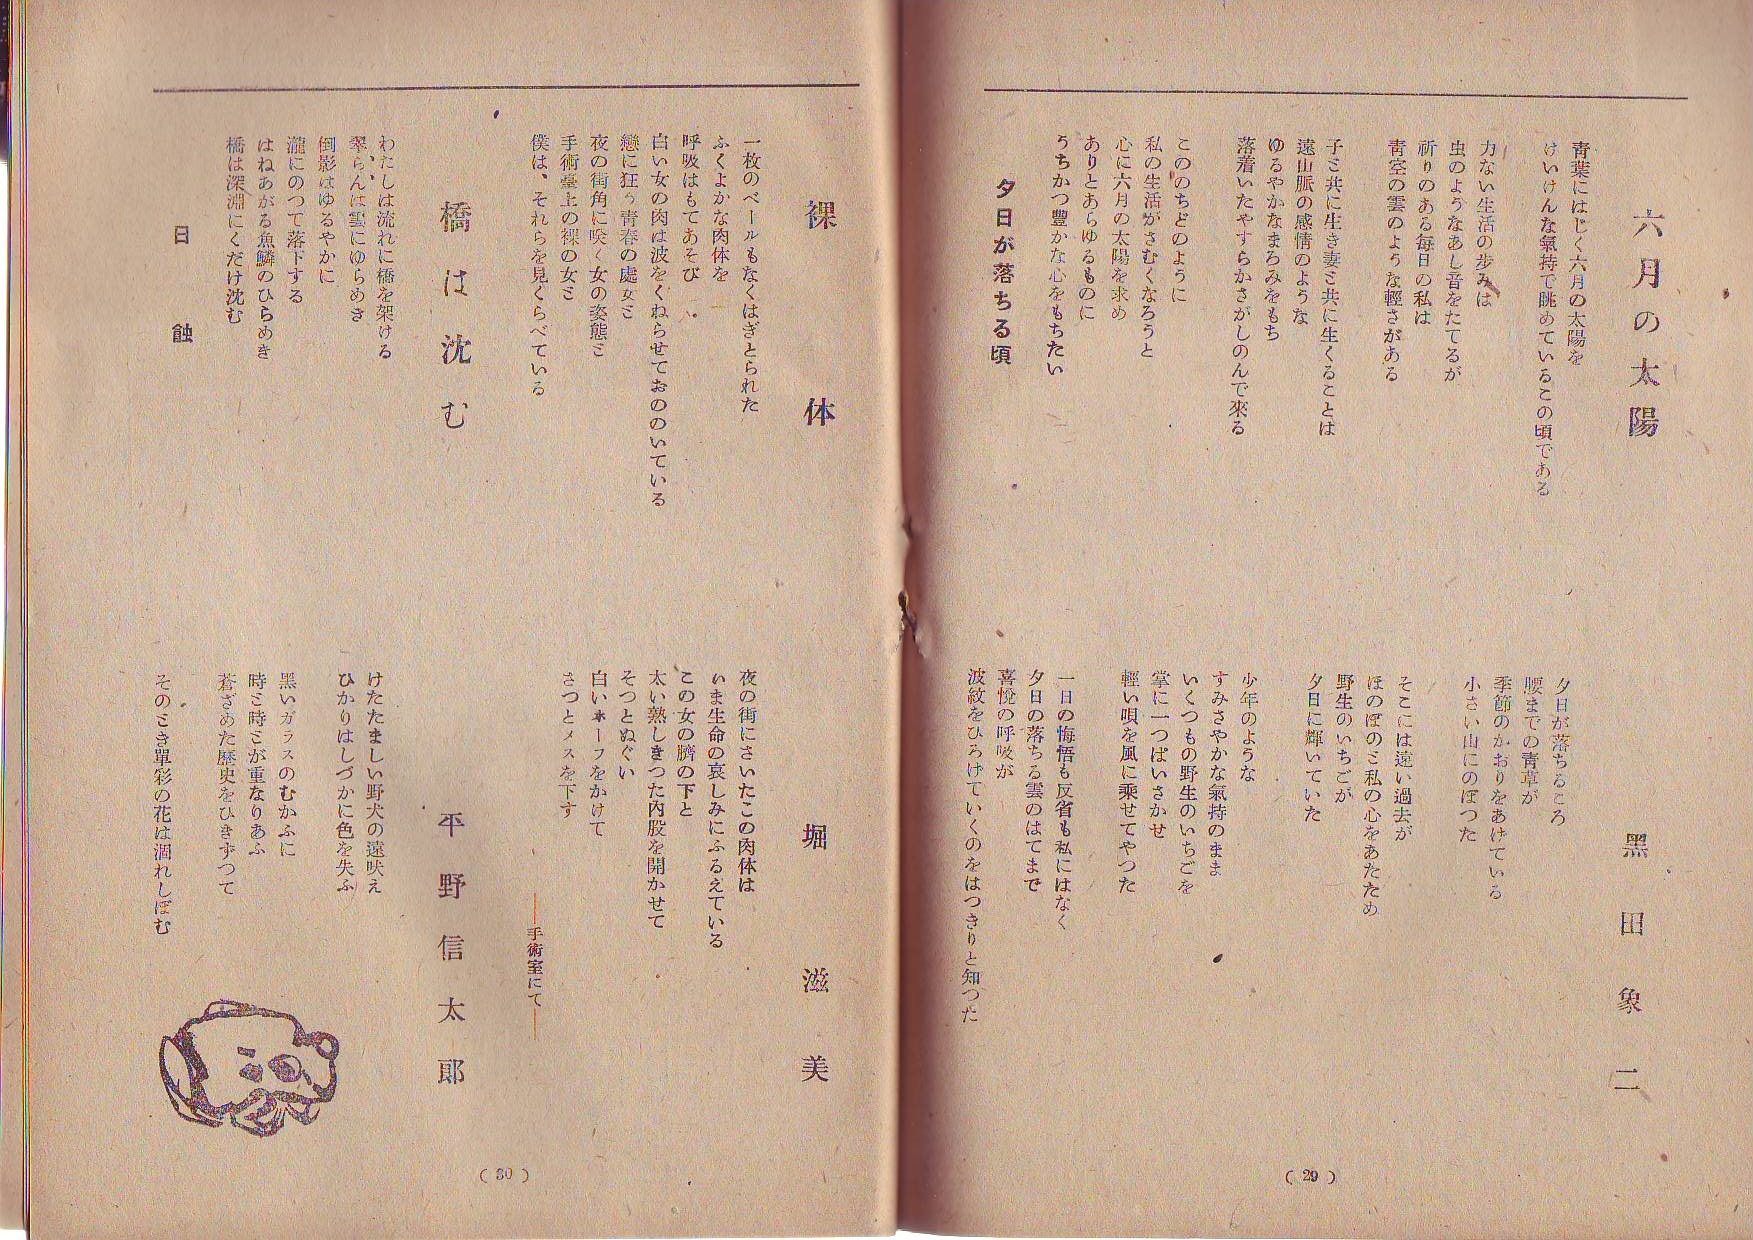 六月の太陽
黑田象二
青葉にはじく六月の太陽を
けいけんな氣持で眺めているこの頃である
力ない生活の歩みは
虫のようなあし音をたてるが
祈りのある毎日の私は
青空の雲のような輕さがある
子ミ共に生き妻ミ共に生くることは
遠山脈の感情のような
ゆるやかなまろみをもち
落着いたやすらかさがしのんで來る
こののちどのように
私の生活がさむくなろうと
心に六月の太陽を求め
ありとあらゆるものに
うちかつ豊かな心をもちたい
夕日が落ちる頃
夕日が落ちるころ
腰までの青草が
季節のかおりをあけている
小さい山にのぼつた
そこには遠い過去が
ほのぼのミ私の心をあたため
野生のいちごが
夕日に輝いていた
少年のような
すみさやかな氣持のまま
いくつもの野生のいちごを
掌に一つぱいさかせ
輕い唄を風に乘せてやつた
一日の悔悟も反省も私にはなく
夕日の落ちる雲のはてまで
喜悅の呼吸が
波紋をひろげていくのをはつきりと知つた
( 29 )
裸体
堀滋美
一枚のベールもなくはぎとられた
ふくよかな肉体を
呼吸はもてあそび
白い女の肉は波をくねらせておののいている
戀に狂う青春の處女ミ
夜の街角に咲く女の姿態ミ
手術臺上の裸の女ミ
僕は、それらを見くらべている
夜の街にさいたこの肉体は
いま生命の哀しみにふるえている
この女の臍の下と
太い熟しきつた內股を開かせて
そつとぬぐい
白いネーフをかけて
さつとメスを下す
——手術室にて——
橋は沈む
平野信太郎
わたしは流れに橋を架ける
翠らんは雲にゆらめき
倒影はゆるやかに
瀧にのつて落下する
はねあがる魚鱗のひらめき
橋は深淵にくだけ沈む
日蝕
けたたましい野犬の遠吠え
ひかりはしづかに色を失ふ
黑いガラスのむかふに
時ミ時ミが重なりあふ
蒼ざめた歷史をひきずつて
そのミき單彩の花は涸れしぼむ
( 30 )